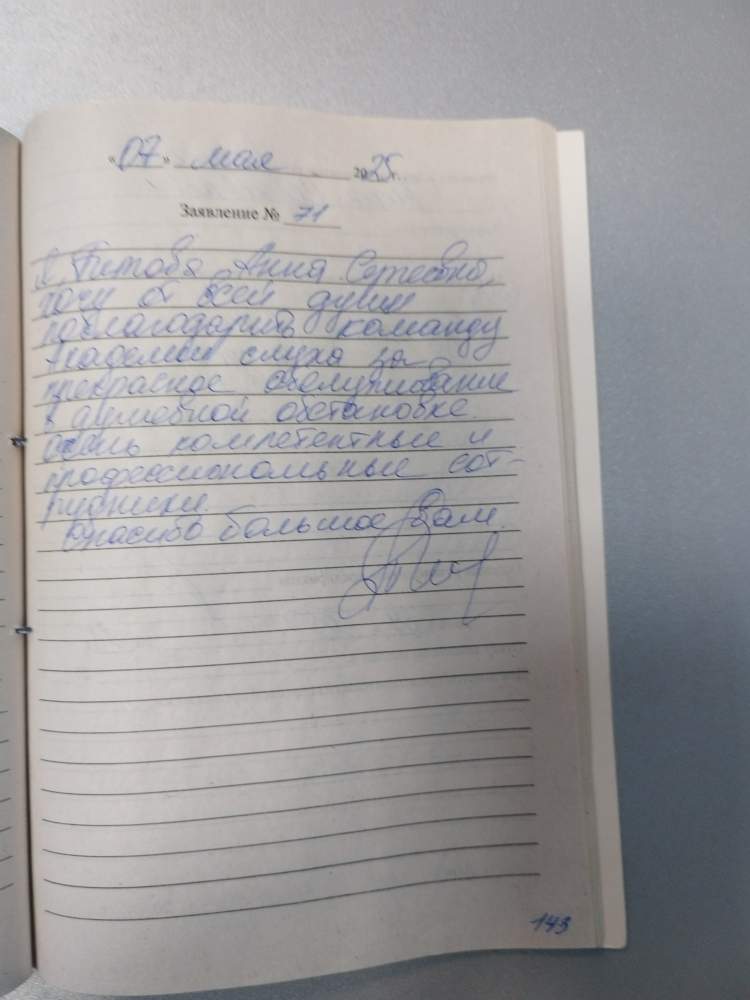 «07» мая 2025г.
Заявление № 71
Я, Титова Анна Сергеевна,
хочу от всей души
поблагодарить команду
Академии слуха за
прекрасное обслуживание
в душевной обстановке.
Очень компетентные и
профессиональные сот-
рудники.
Спасибо большое Вам.
143